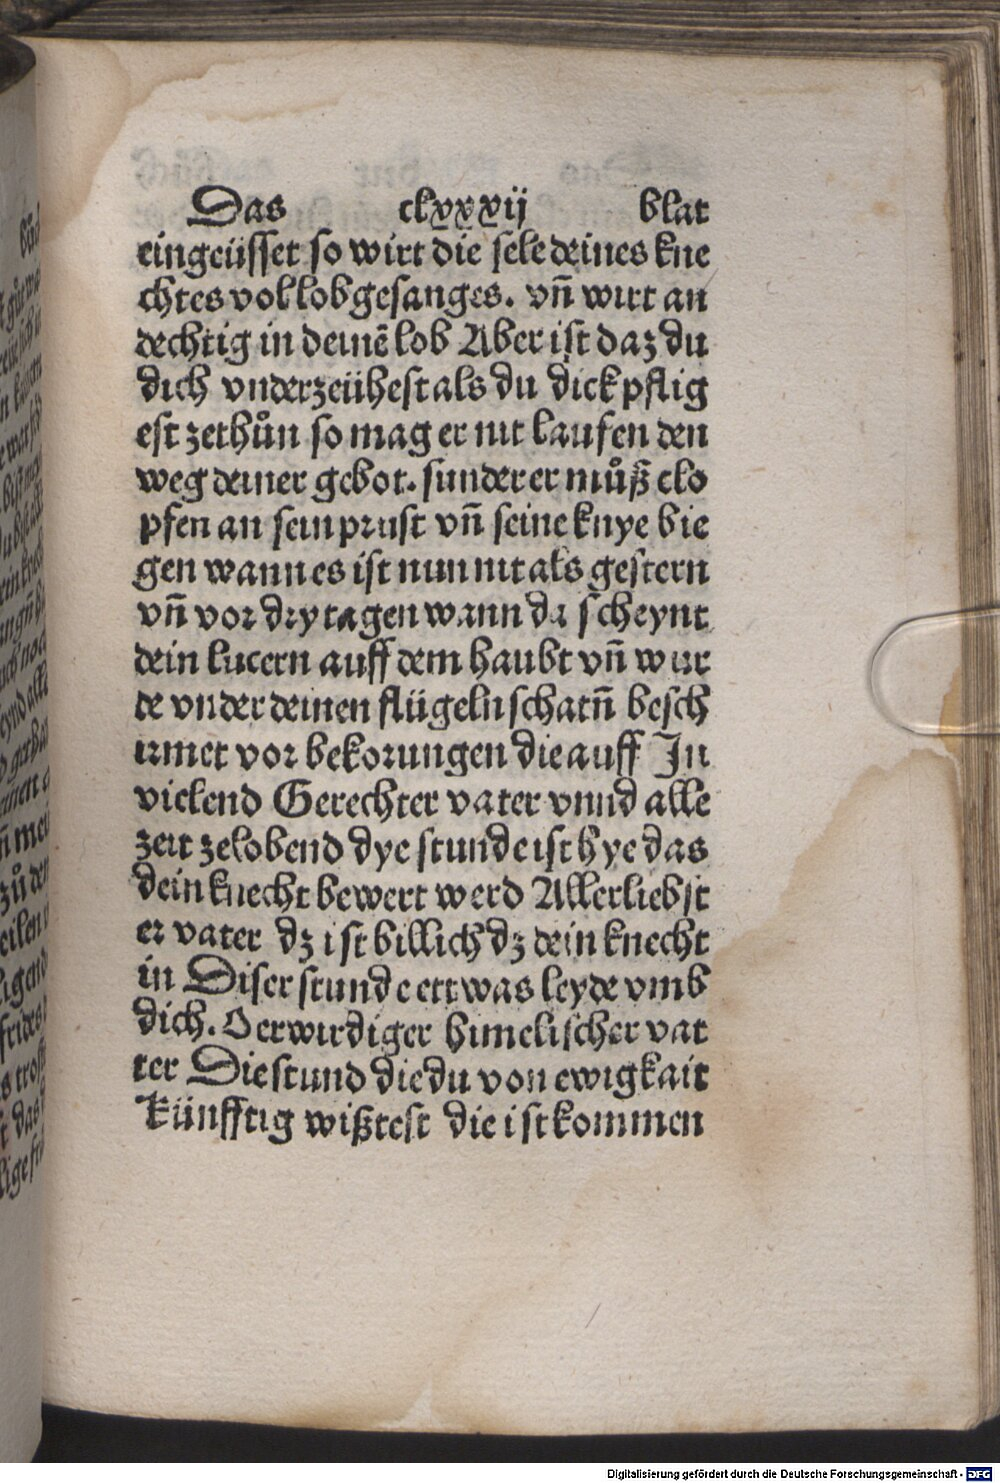 Das clxxxij blat
eingeüsset so wirt die sele deines kne
chtes vol lobgesanges. vn̄ wirt an
dechtig in deinē lob Aber ist daz du
dich vnderzeühest als du dick pflig
est zethůn so mag er nit laufen den
weg deiner gebot. sunder er můß clo
pfen an sein prust vn̄ seine knye bie
gen wann es ist nun nit als gestern
vn̄ vor dry tagen wann da scheynt
dein lucern auff dem haubt vn̄ wur
de vnder deinen flügeln schatn̄ besch
irmet vor bekorungen die auff In
vielend Gerechter vater vnnd alle
zeit zelobend dye stunde ist hye das
dein knecht bewert werd Allerliebst
er vater dz ist billich dz dein knecht
in Diser stunde ettwas leyde vmb
dich. O erwirdiger himelischer vat
ter Die stund die du von ewigkait
künfftig wißtest die ist kommen
Digitalisierung gefördert durch die Deutsche Forschungsgemeinschaft - DFG